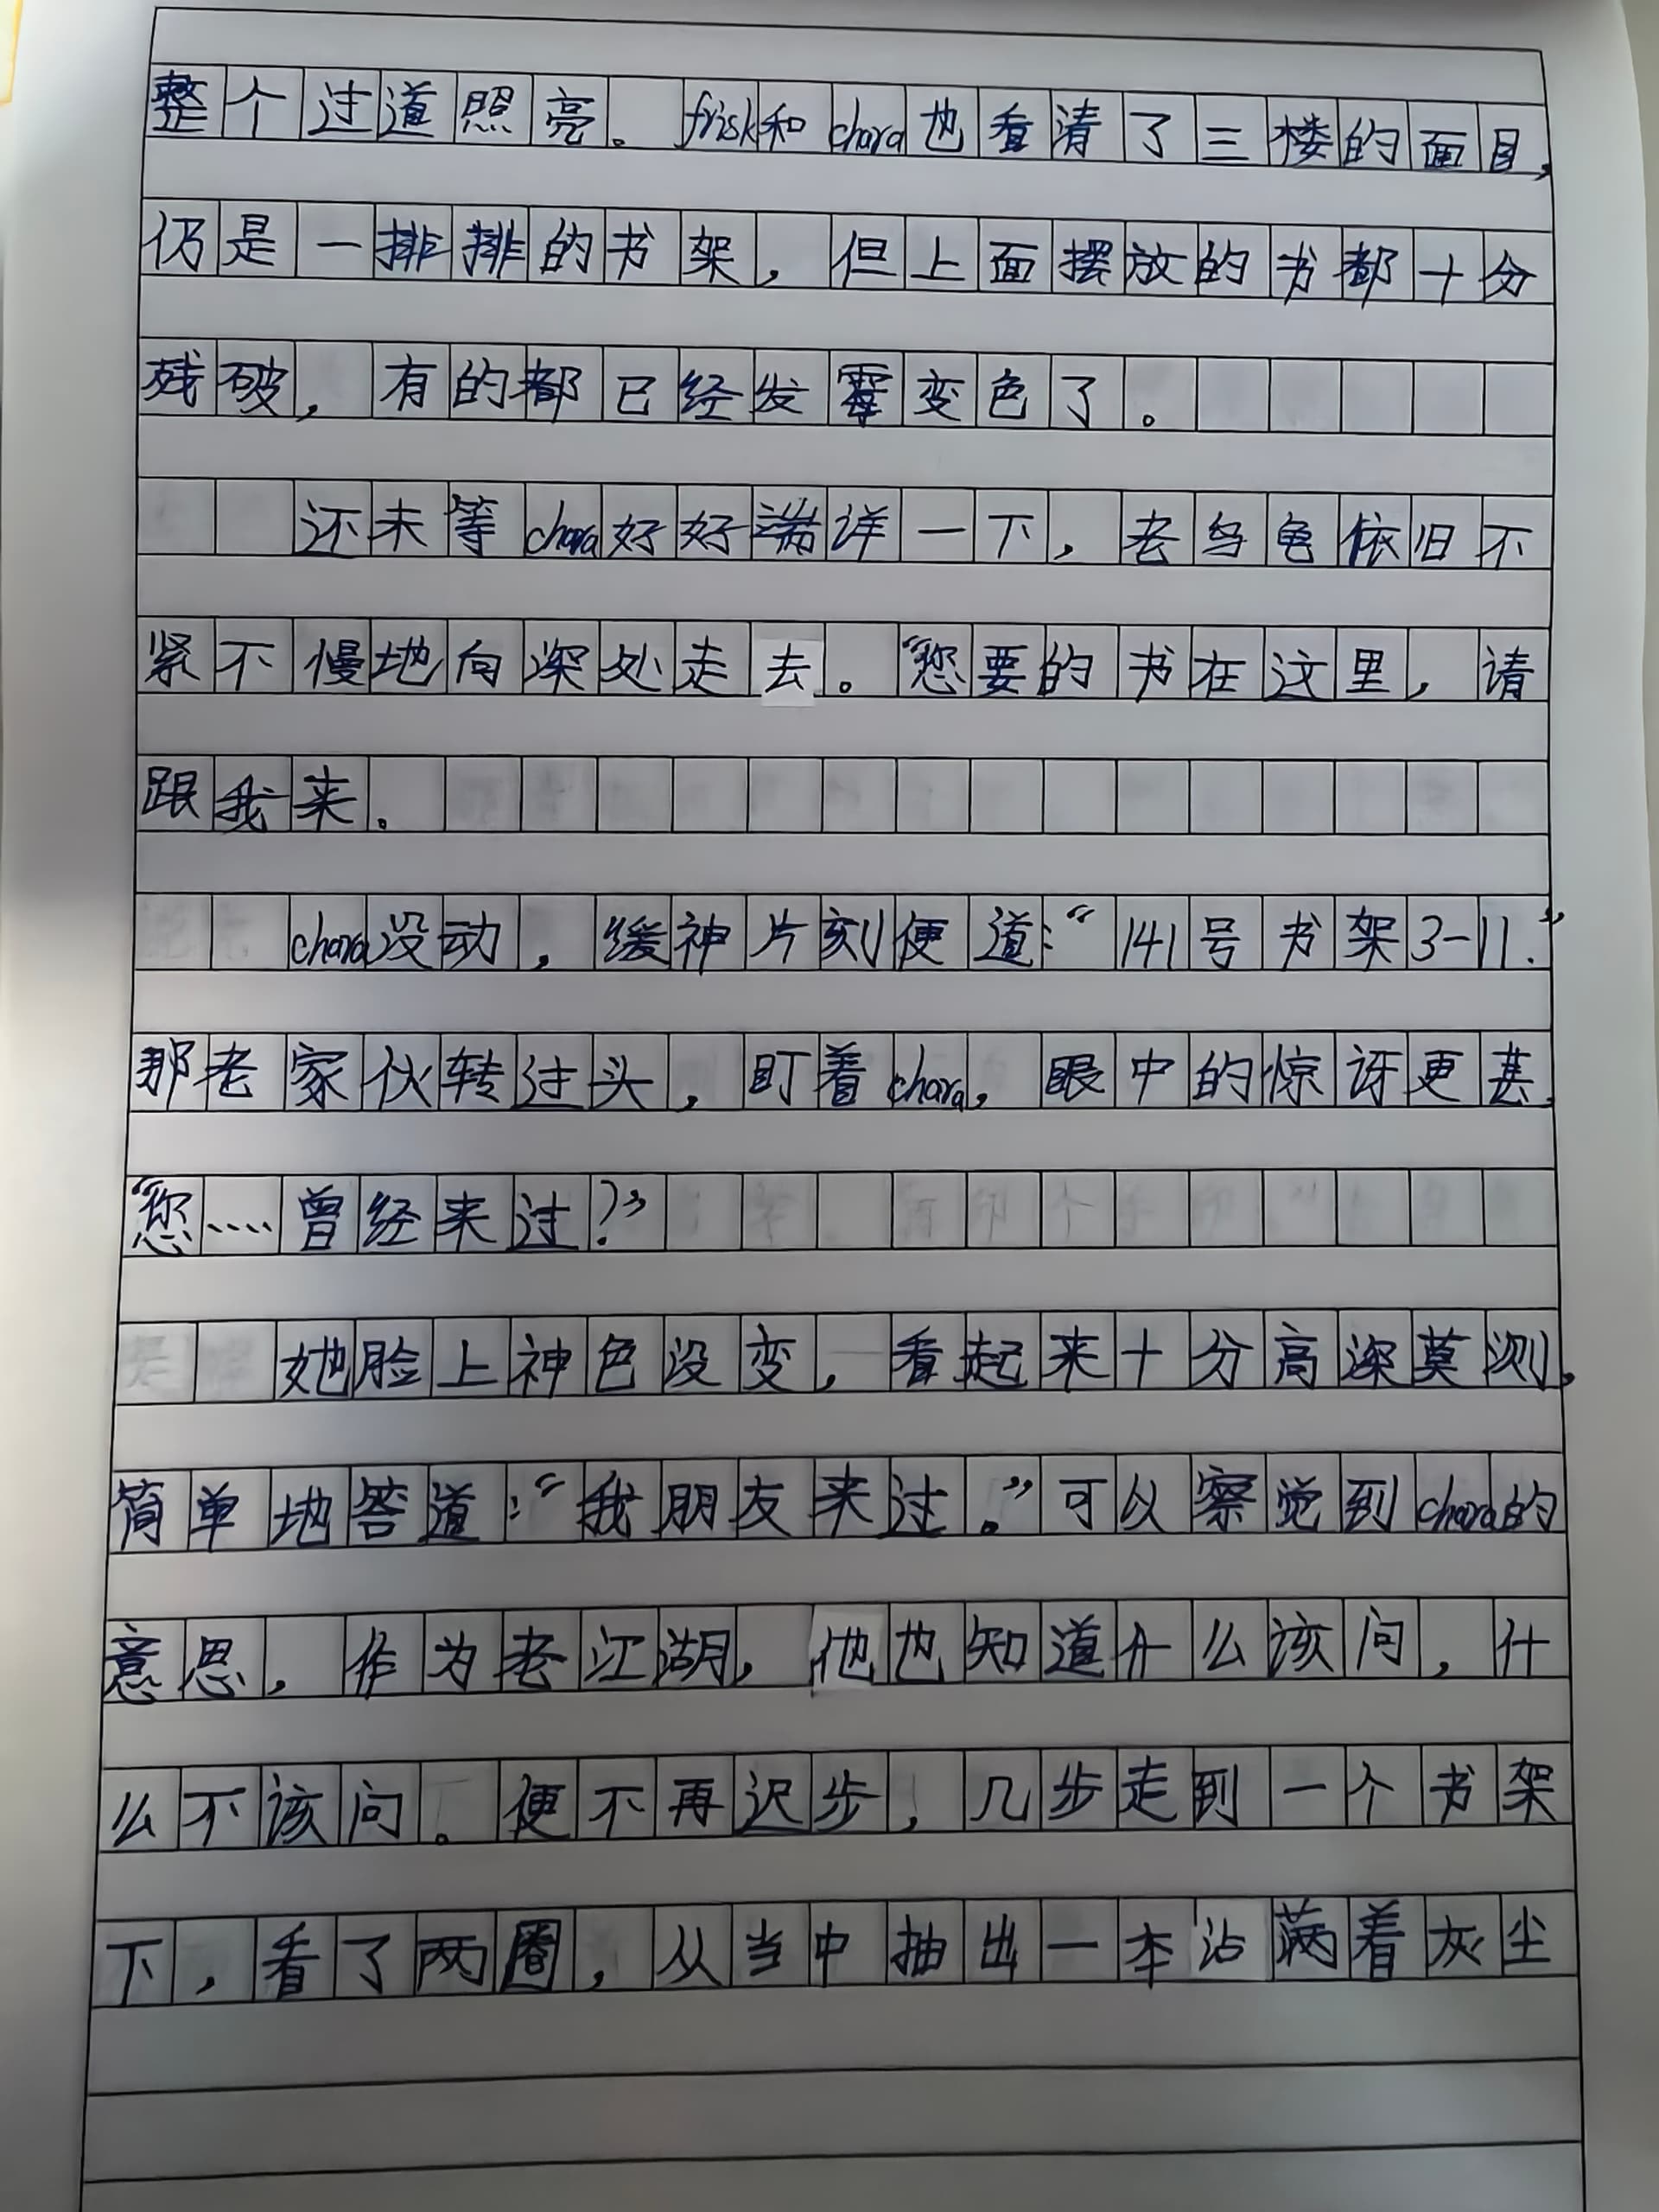 整个过道照亮。frisk和chara也看清了三楼的面目,
仍是一排排的书架，但上面摆放的书都十分
残破，有的都已经发霉变色了。
还未等chara好好端详一下，老乌龟依旧不
紧不慢地向深处走去。“您要的书在这里，请
跟我来。
chara没动，缓神片刻便道：“141号书架3-11.”
那老家伙转过头，盯着chara，眼中的惊讶更甚.
“您....曾经来过？”
她脸上神色没变，看起来十分高深莫测，
简单地答道：“我朋友来过。”可以察觉到chara的
意思，作为老江湖，他也知道什么该问，什
么不该问。便不再迟步，几步走到一个书架
下，看了两圈，从当中抽出一本沾满着灰尘